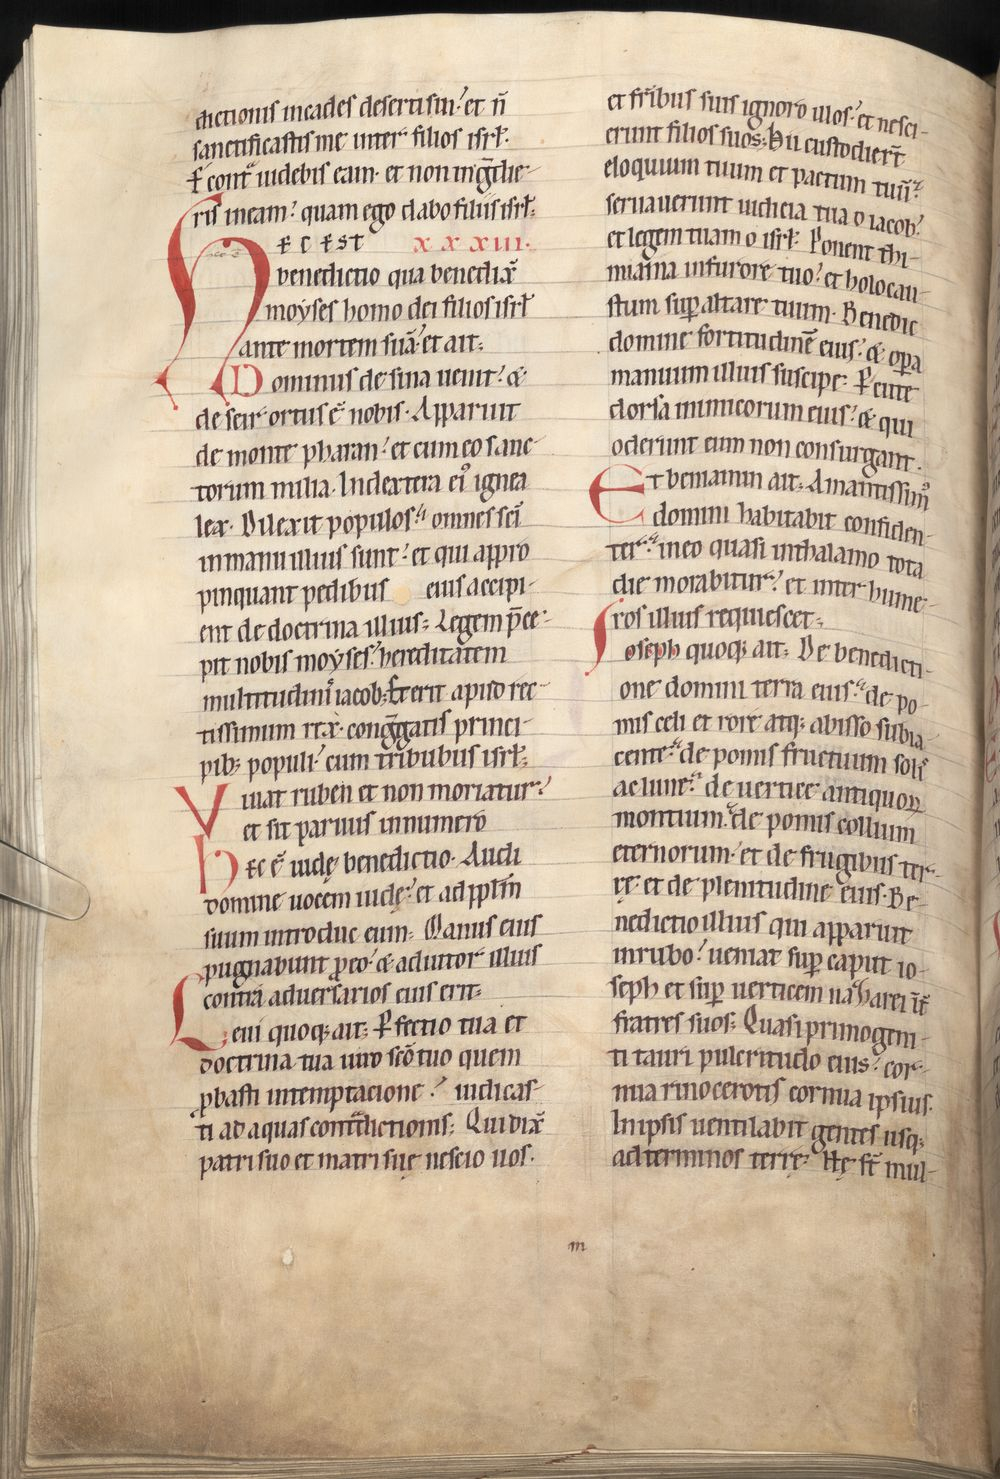 dictionis incades deserti sin. et n̄
sanctificastis me inter filios isrł.
E cont͛ uidebis eam. et non ing̅die-
ris in eam. quam ego dabo filiis isrł.
HEC EST XXXIII.
benedictio qua benedix̅
moyses homo dei filios isrł
ante mortem suā. et ait.
Dominus de sina uenit. &
de seir ortus ē nobis. Apparuit
de monte pharan. et cum eo sanc-
torum milia. In dextera ei᾽ ignea
lex. Dilexit populos. omnes sc̄i
in manu illius sunt. et qui appro
pinquant pedibus eius accipi-
ent de doctrina illius. Legem p̄ce-
pit nobis moyses. hereditatem
multitudinis iacob. Erit apud rec-
tissimum rex. cong̅gatis princi-
pib; populi. cum tribubus isrł.
Viuat ruben et non moriatur.
et sit paruus in numero
Hec ē iudę benedictio. Audi
domine uocem iudę. et ad pplm̄
suum introduc eum. Manus eius
pugnabunt ꝓ eo. & adiutor illius
contra aduersarios eius erit.
Leui quoq; ait. Perfectio tua et
doctrina tua uiro sc̄o tuo quem
ꝓbasti in temptacione. iudicas-
ti ad aquas cont͛dictionis. Qui dix̅
patri suo et matri suę nescio uos.
et frībus suis ignoro illos. et nesci-
erunt filios suos. Hii custodiert̄
eloquium tuum et pactum tuū.
seruauerunt iudicia tua o iacob.
et legem tuam o isrł. Ponent thi-
miama in furore tuo. et holocau-
stum sup̱ altare tuum. Benedic
domine fortitudinē eius. & op̱a
manuum illius suscipe. Percute
dorsa inimicorum eius. & qui
oderunt eum non consurgant.
Et beniamin ait. Amantissim᾽
domini habitabit confiden-
ter. in eo quasi in thalamo tota
die morabitur. et inter hume-
ros illius requiescet.
Ioseph quoq; ait. De benedicti-
one domini terra eius. de po-
mis celi et rore atq; abisso subia-
cente. de pomis fructuum solis
ac lune. de uertice antiquoꝝ
montium. de pomis collium
eternorum. et de frugibus ter-
rę. et de plenitudine eius. Be-
nedictio illius qui apparuit
in rubo. ueniat sup̱ caput io-
seph et sup̱ uerticem nazarei int̄
fratres suos. Quasi primogeni-
ti tauri pulcritudo eius. cor-
nua rinocerotis cornua ipsius.
In ipsis uentilabit gentes usq;
ad terminos terrę. Hę st̄ mul-
m